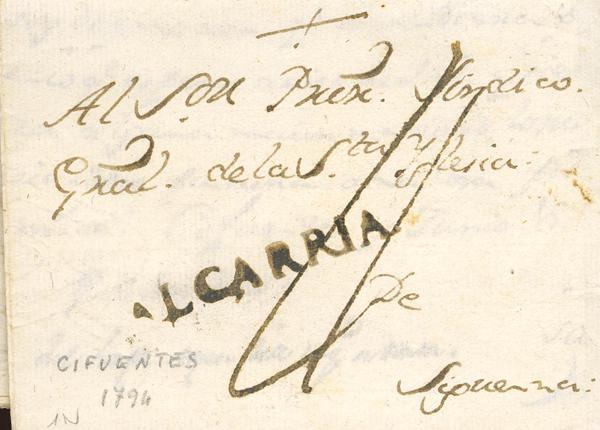 Al Sor. Prior. Sindico.
Gral. de la Sta Yglesia:
ALCARRIA
De
Siguenza:
CIFUENTES
1794
1N